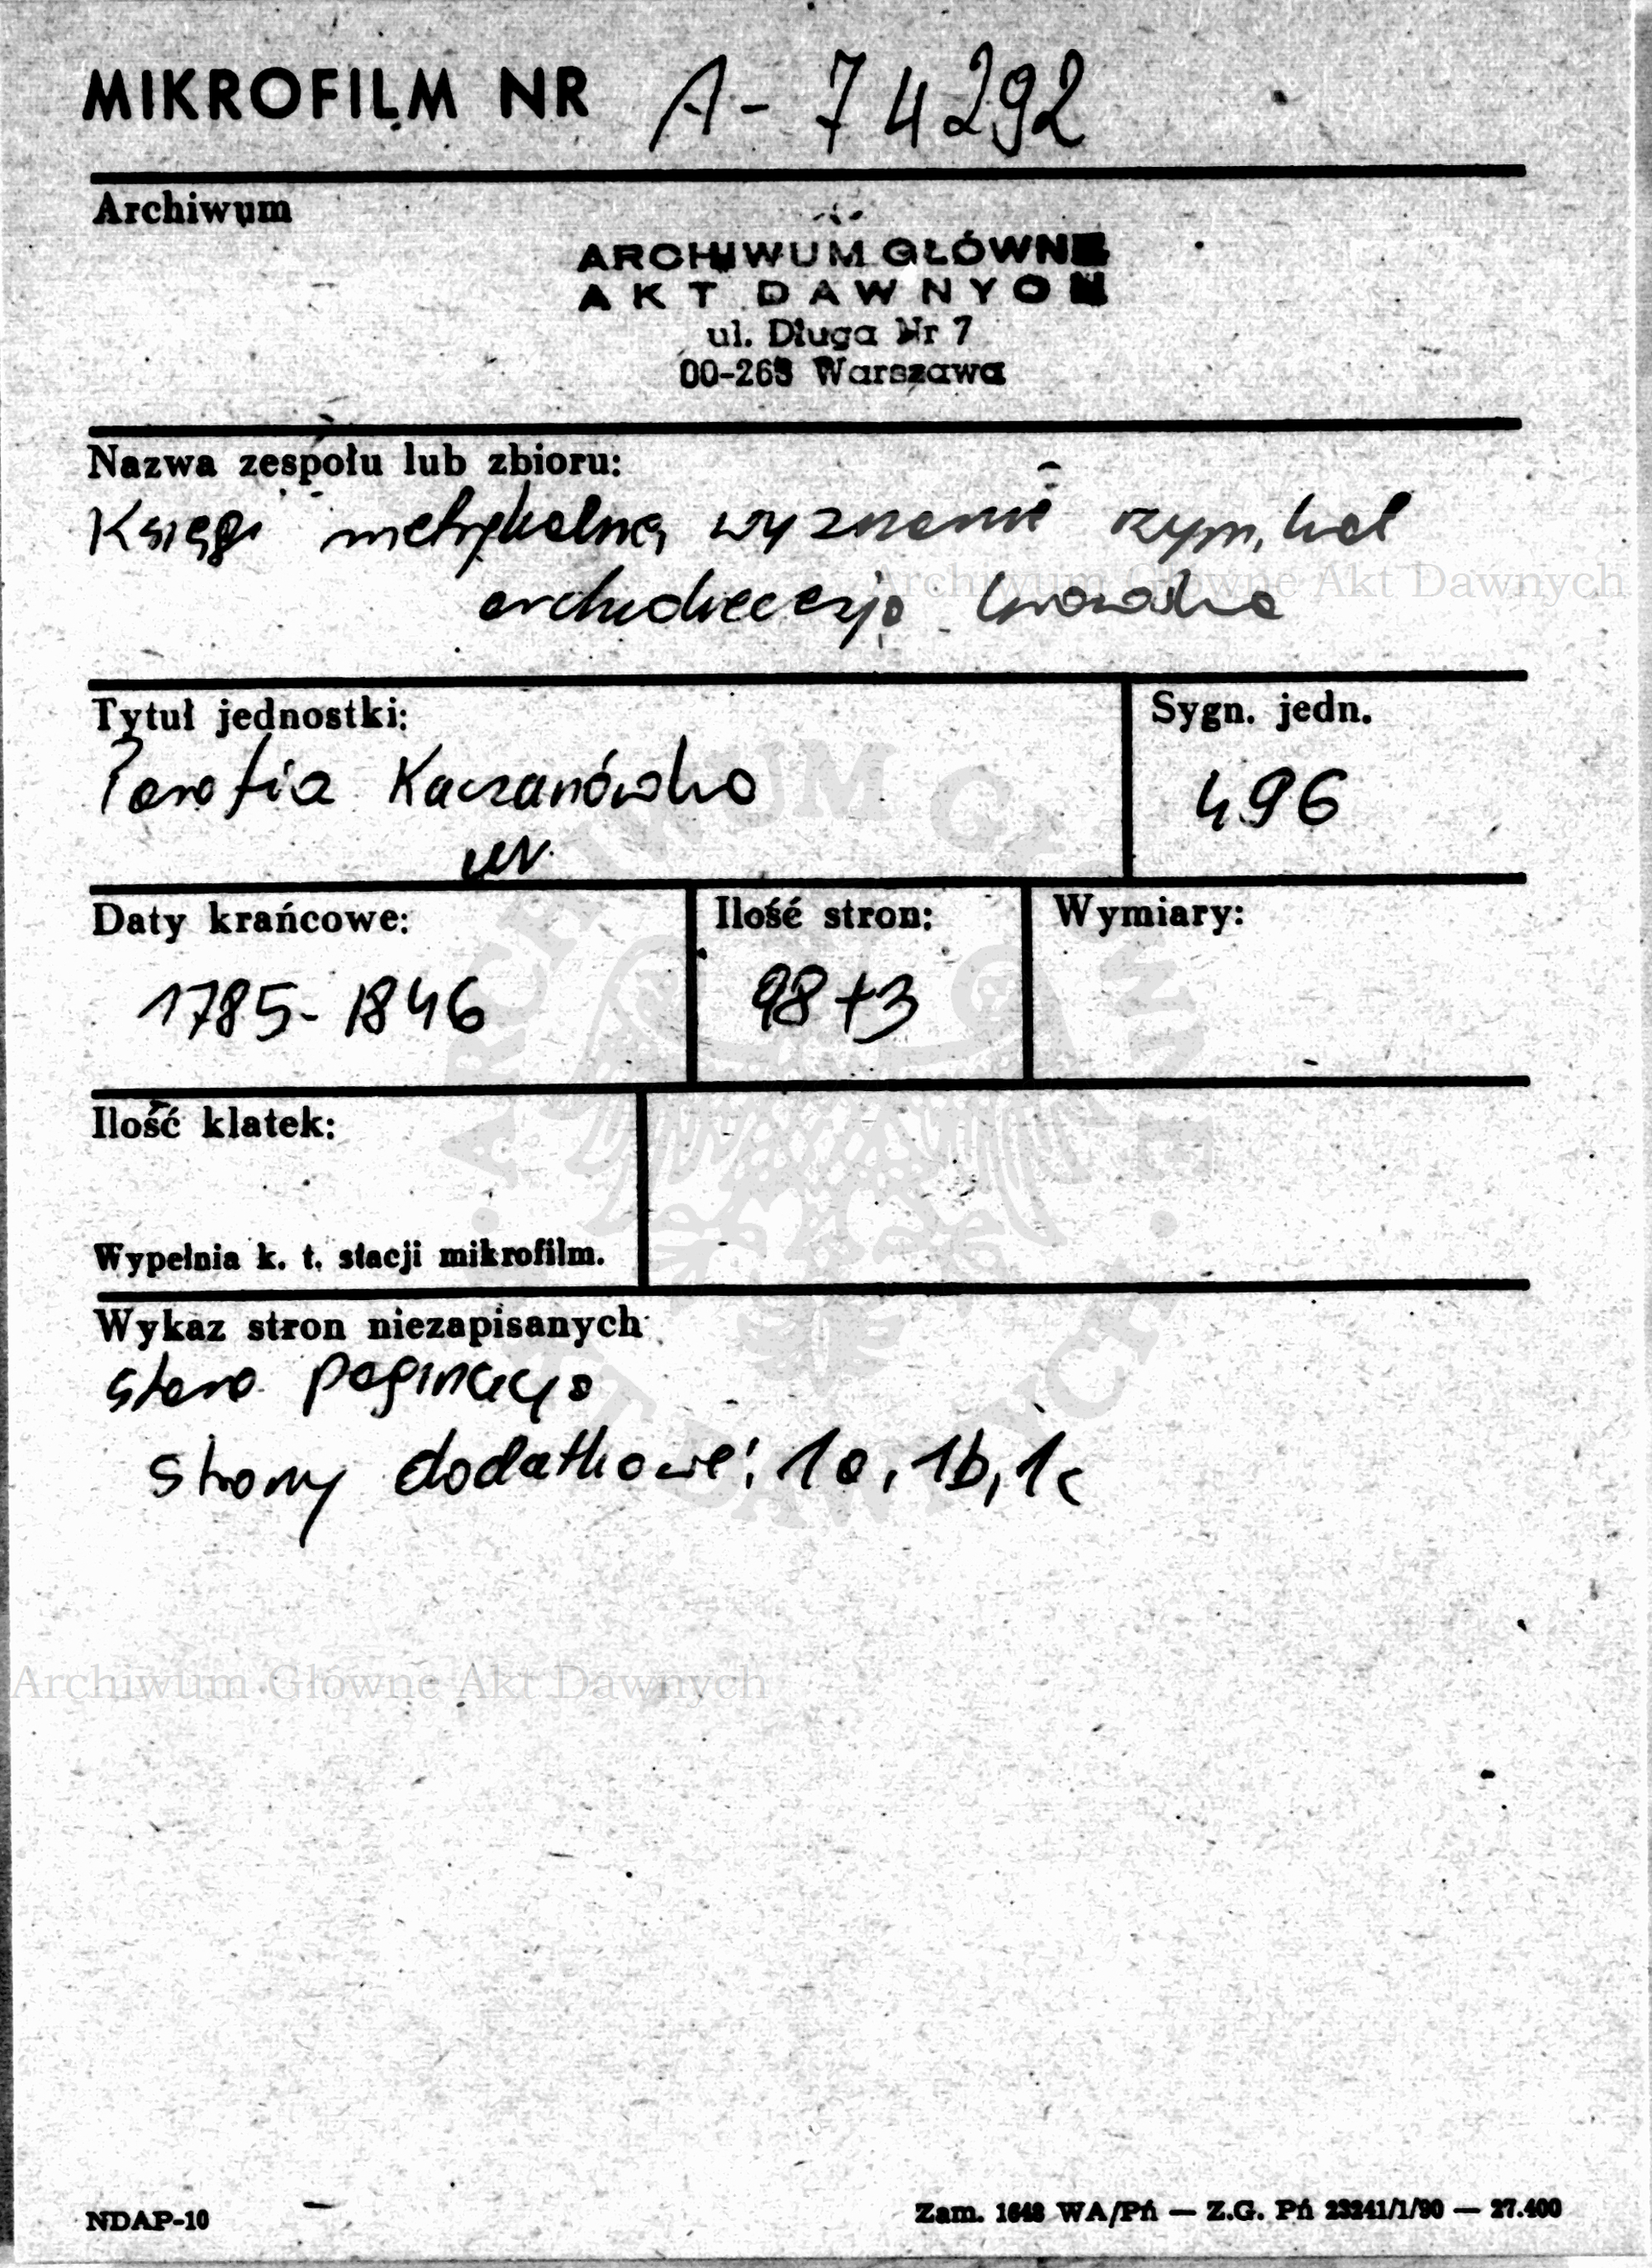 MIKROFILM NR A-74292
Archiwum
ARCHIWUM GŁÓWNE
AKT DAWNYCH
ul. Długa Nr 7
00-263 Warszawa
Nazwa zespołu lub zbioru:
Księgi metrykalne wyznanie rzym. kat
Archiwum Główne Akt Dawnych
archidiecezja lwowska
Tytuł jednostki:
Sygn. jedn.
Parafia Kaczanówka
496
ur.
Daty krańcowe:
Ilość stron:
Wymiary:
1785-1846
98+3
Ilość klatek:
Wypełnia k. t. stacji mikrofilm.
Wykaz stron niezapisanych
stara paginacja
strony dodatkowe: 1a, 1b, 1c
ARCHIWUM GŁÓWNE AKT DAWNYCH
Archiwum Główne Akt Dawnych
NDAP-10
Zam. 1648 WA/Pń — Z.G. Pń 23241/1/90 — 27.400